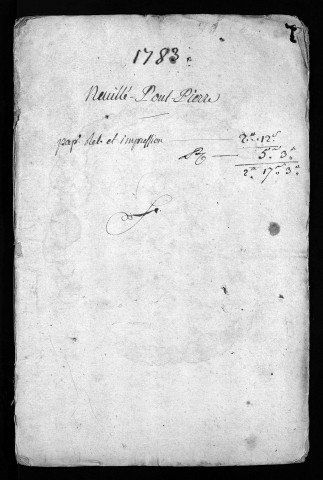 1783.
Neuillé-Pont Pierre
pap. et impression 2.tt 12.s
5. 3.
2.tt 17.s 3.